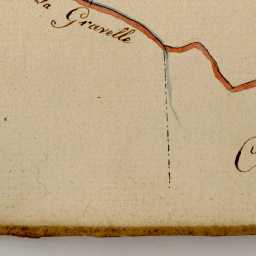 la Gravelle